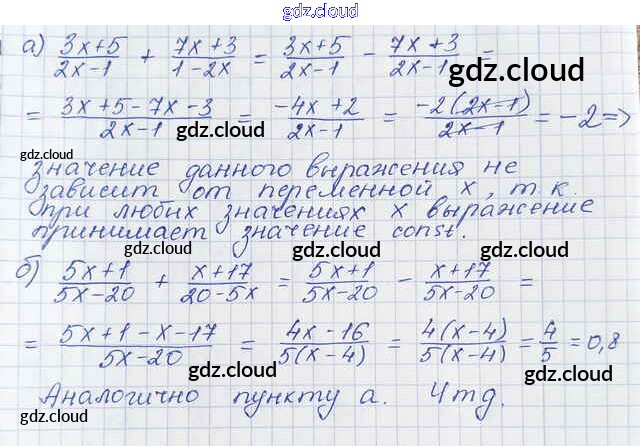 gdz.cloud
а) (3x+5)/(2x-1) + (7x+3)/(1-2x) = (3x+5)/(2x-1) - (7x+3)/(2x-1) =
gdz.cloud
= (3x+5-7x-3)/(2x-1) = (-4x+2)/(2x-1) = (-2(2x-1))/(2x-1) = -2 =>
gdz.cloud gdz.cloud
gdz.cloud
значение данного выражения не
зависит от переменной x, т.к.
при любых значениях x выражение
принимает значение const.
gdz.cloud gdz.cloud
б) (5x+1)/(5x-20) + (x+17)/(20-5x) = (5x+1)/(5x-20) - (x+17)/(5x-20) =
= (5x+1-x-17)/(5x-20) = (4x-16)/(5(x-4)) = (4(x-4))/(5(x-4)) = 4/5 = 0,8
gdz.cloud gdz.cloud
Аналогично пункту а. Чтд.
gdz.cloud gdz.cloud